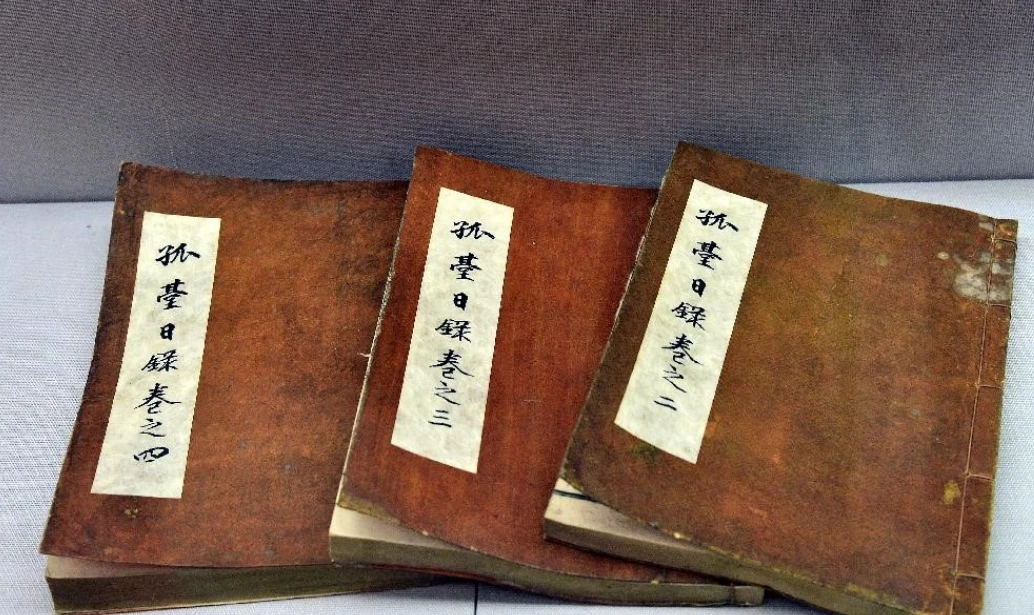 孤臺日録卷之二
孤臺日録卷之三
孤臺日録卷之四